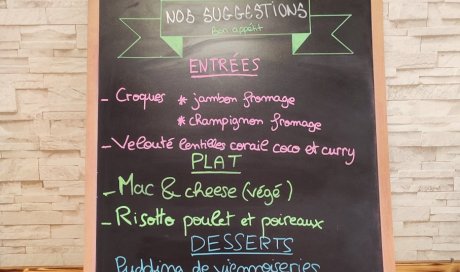 NOS SUGGESTIONS
Bon appétit
ENTRÉES
- Croques * jambon fromage
* champignon fromage
- Velouté lentilles corail coco et curry
PLAT
- Mac & cheese (végé)
- Risotto poulet et poireaux
DESSERTS
Pudding de viennoiseries